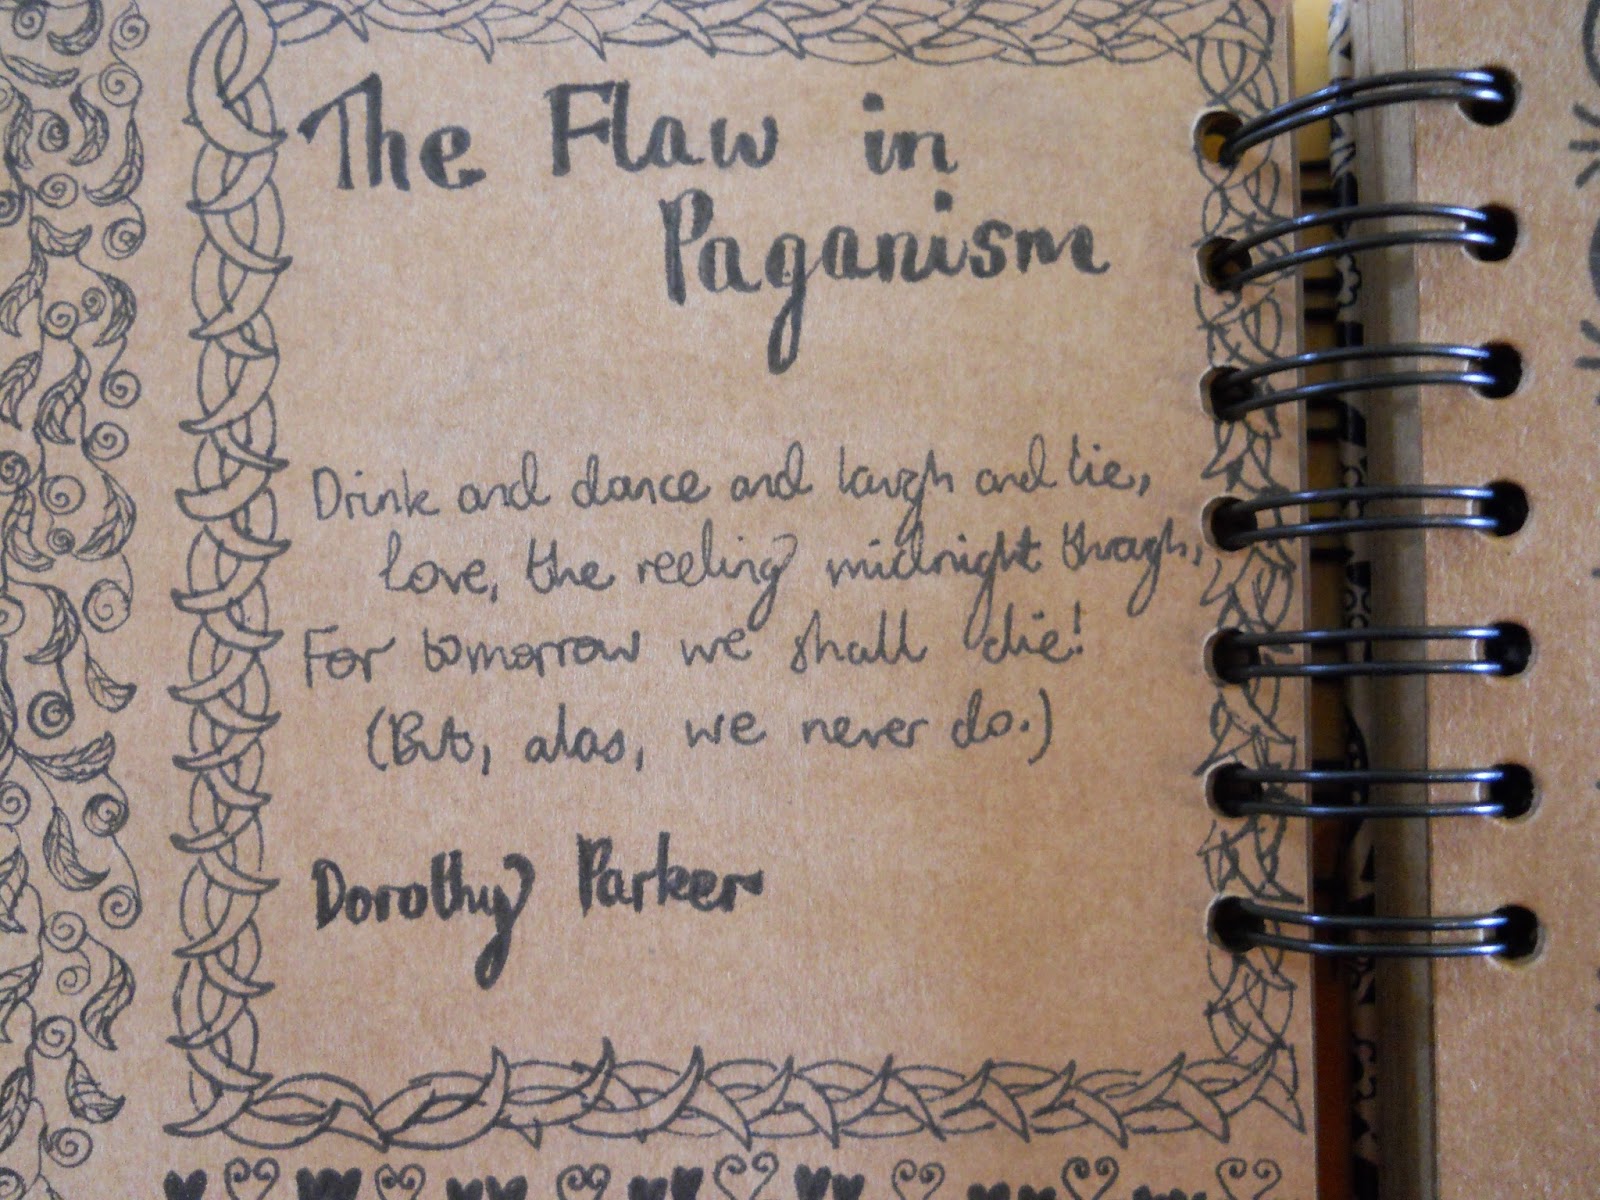 The Flaw in
Paganism
Drink and dance and laugh and lie,
love, the reeling midnight through,
For tomorrow we shall die!
(But, alas, we never do.)
Dorothy Parker